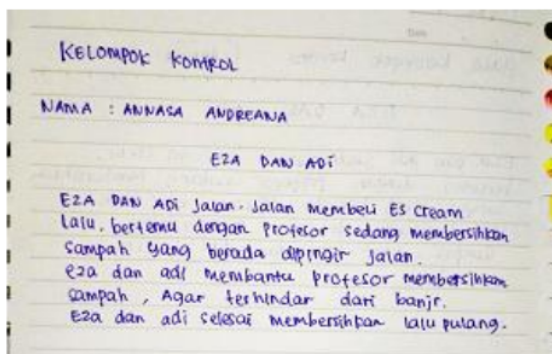 KELOMPOK KONTROL
NAMA : ANNASA ANDREANA
EZA DAN ADI
EZA DAN ADI Jalan-Jalan membeli Es Cream
Lalu, bertemu dengan profesor sedang membersihkan
sampah yang berada dipingir jalan.
eza dan adi membantu profesor membersihkan
sampah, Agar terhindar dari banjr.
Eza dan adi selesai membersihkan lalu pulang.